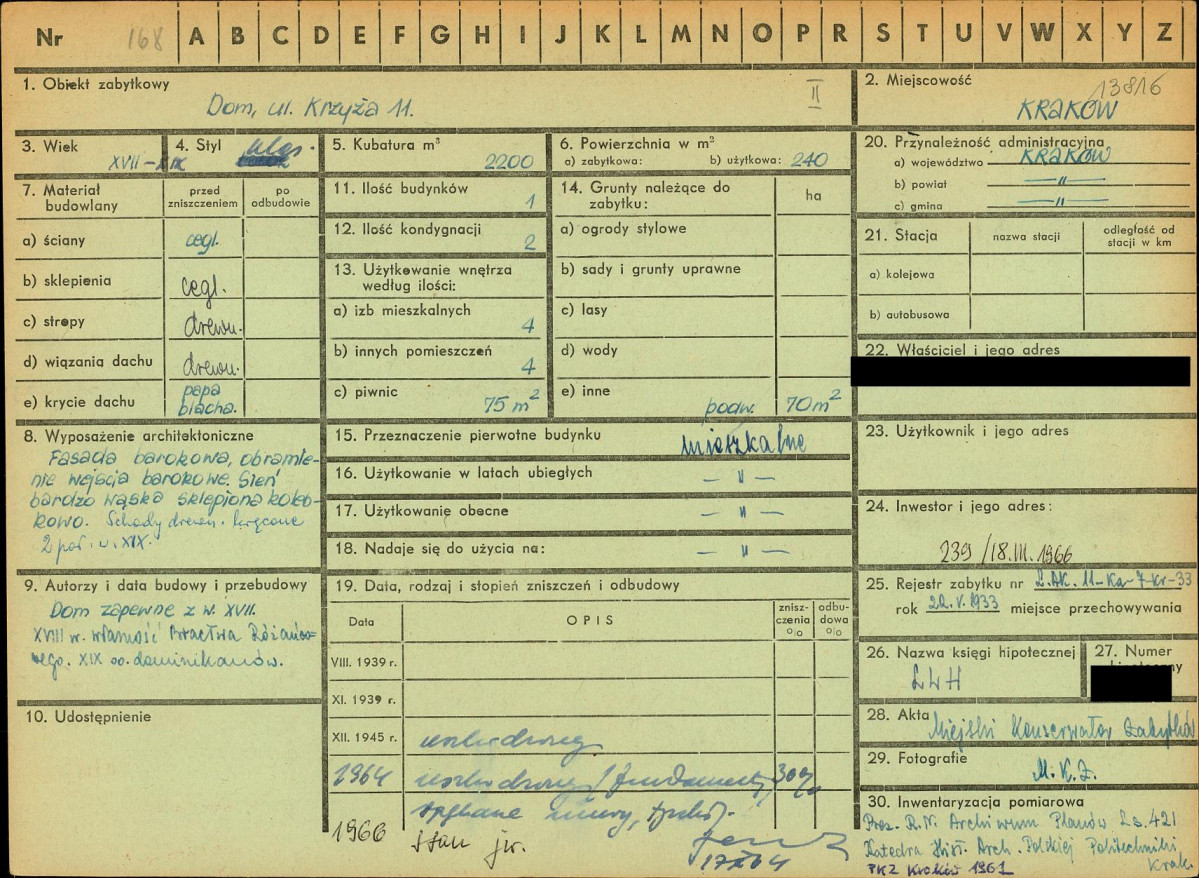 Nr 168 A B C D E F G H I J K L M N O P R S T U V W X Y Z
1. Obiekt zabytkowy
Dom, ul. Krzyża 11.
II
2. Miejscowość
13816
KRAKÓW
3. Wiek
XVII-XIX
4. Styl
5. Kubatura m³
2200
6. Powierzchnia w m²
a) zabytkowa: b) użytkowa: 240
20. Przynależność administracyjna
a) województwo KRAKÓW
b) powiat — " —
c) gmina — " —
7. Materiał budowlany
przed zniszczeniem
po odbudowie
a) ściany cegl.
b) sklepienia cegl.
c) stropy drewn.
d) wiązania dachu drewn.
e) krycie dachu papa blacha.
11. Ilość budynków
1
12. Ilość kondygnacji
2
13. Użytkowanie wnętrza
według ilości:
a) izb mieszkalnych
4
b) innych pomieszczeń
4
c) piwnic
75 m²
14. Grunty należące do
zabytku:
ha
a) ogrody stylowe
b) sady i grunty uprawne
c) lasy
d) wody
e) inne
podw. 70 m²
21. Stacja
nazwa stacji
odległość od
stacji w km
a) kolejowa
b) autobusowa
22. Właściciel i jego adres
8. Wyposażenie architektoniczne
Fasada barokowa, obramie-
nie wejścia barokowe. Sień
bardzo wąska sklepiona koleb-
kowo. Schody drewn. kręcone
2 poł. w. XIX.
15. Przeznaczenie pierwotne budynku mieszkalne
16. Użytkowanie w latach ubiegłych — " —
17. Użytkowanie obecne — " —
18. Nadaje się do użycia na: — " —
23. Użytkownik i jego adres
24. Inwestor i jego adres:
239/18.III.1966
9. Autorzy i data budowy i przebudowy
Dom zapewne z w. XVII.
XVIII w. własność Bractwa Różańco-
wego. XIX oo. dominikanów.
19. Data, rodzaj i stopień zniszczeń i odbudowy
Data
OPIS
znisz-
czenia
%
odbu-
dowa
%
VIII. 1939 r.
XI. 1939 r.
XII. 1945 r. uszkodzony
1964 uszkodzony /fundamenty, 30%
spękane mury,
1966 stan jw.
25. Rejestr zabytku nr L.AK. 11-Ka-7 kr-33
rok 22.V.1933 miejsce przechowywania
26. Nazwa księgi hipotecznej
LWH
27. Numer
10. Udostępnienie
28. Akta Miejski Konserwator Zabytków
29. Fotografie
M.K.Z.
30. Inwentaryzacja pomiarowa
Prez. R.N. Archiwum Planów Ls. 421
Katedra Hist. Arch. Polskiej Politechniki
Krak.
PKZ Kraków 1961